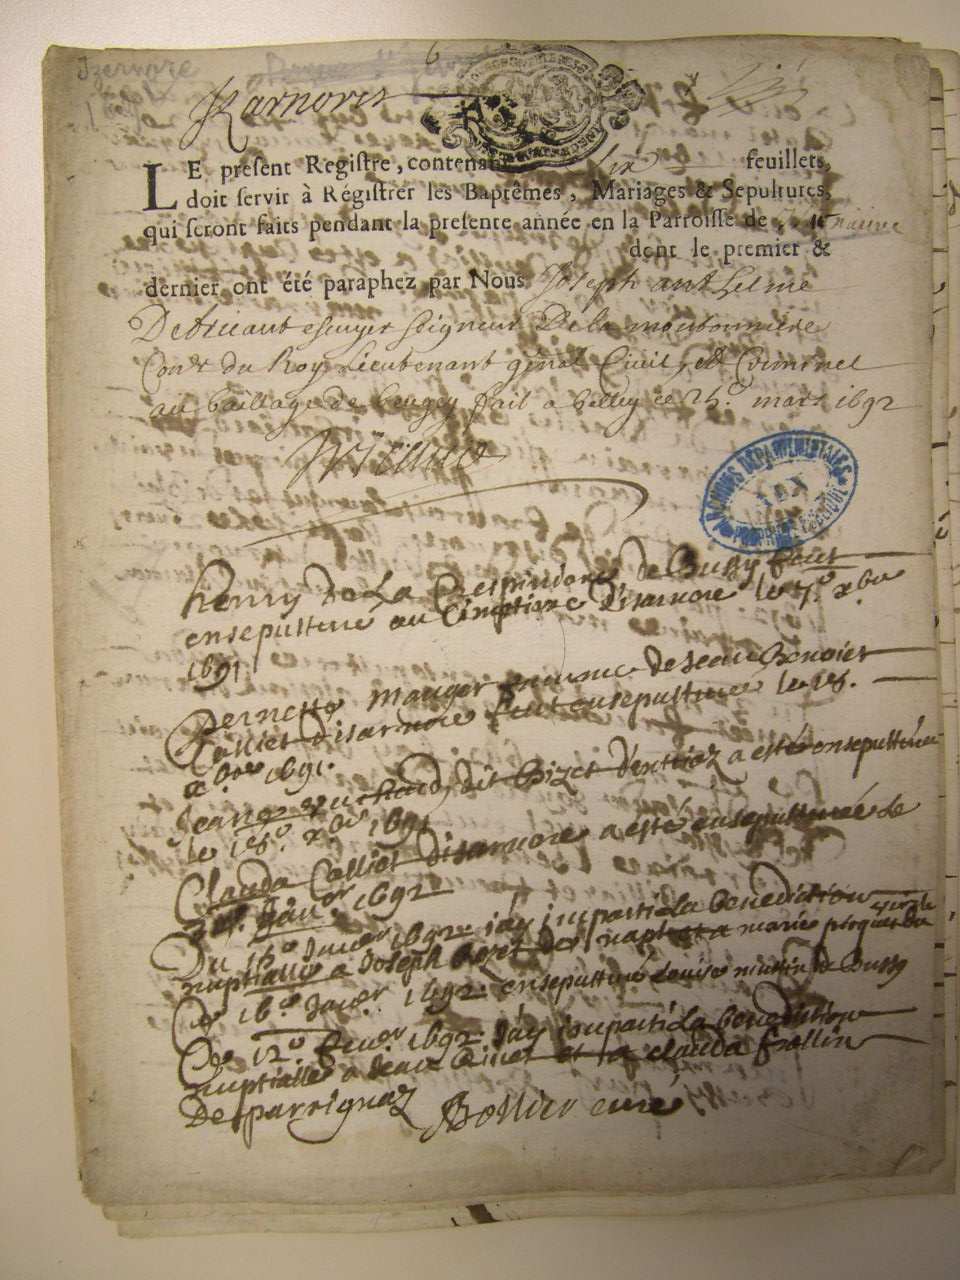 Izernore
6
Izarnore
LE present Registre, contenant six feuillets,
doit servir à Régistrer les Baptêmes, Mariages & Sepultures,
qui seront faits pendant la presente année en la Parroisse de
dont le premier &
dernier ont été paraphez par Nous Joseph anthelme
escuyer Seigneur De la
Conr du Roy Lieutenant genal Civil, et Criminel
au bailliage de beugey fait a belley ce 25e mars 1692
ARCHIVES DÉPARTEMENTALES
AIN
PROPRIÉTÉ PUBLIQUE
henry De La de Bussy feut
ensepulturé au Cimetiere disarnore le 7e xbre
1691
Pernette Mauger femme de Jean Benoist
Calliet disarnore feut ensepulturée le 18.
xbre 1691.
Jean dit Bizet a esté ensepulturé
le 18e xbre 1691
Clauda Calliet disarnore a esté ensepulturée le
Janer 1692
Du 16e Janer 1692 iay imparti la benediction
nuptialle a Joseph et a marie
Ce 16e Janer 1692 ensepulturé Louise de Bussy
Ce 12e feuer 1692 Jay imparti la benediction
nuptialle a Jean et a clauda frollin
De parrignaz Bollier curé